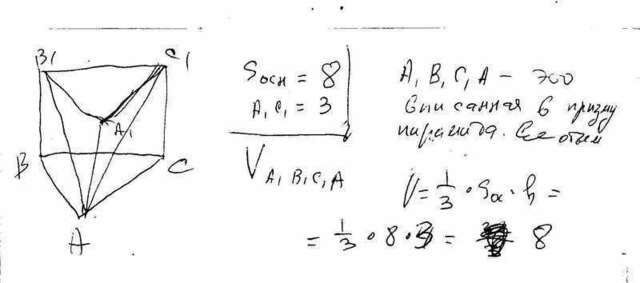 B₁
C₁
A₁
B
C
A
Sосн = 8
A₁C₁ = 3
V A₁B₁C₁A
A₁B₁C₁A – это
вписанная в призму
пирамида. Ее объем
V = 1/3 · Sос · h =
= 1/3 · 8 · 3 = 8